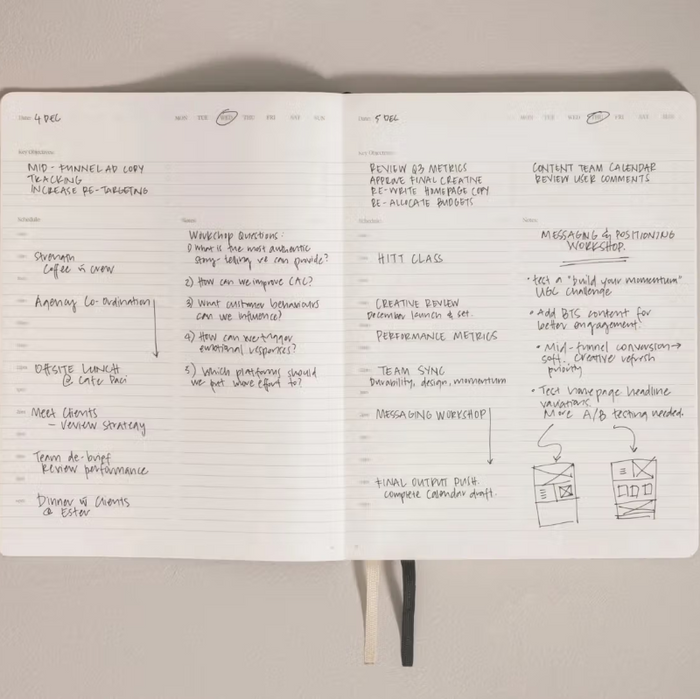 Date: 4 DEC
MON TUE WED THU FRI SAT SUN
Key Objectives
MID-FUNNEL AD COPY
TRACKING
INCREASE RE-TARGETING
Schedule
Strength
Coffee w crew
Agency Co-ordination
OFFSITE LUNCH
@ Cafe Paci
Meet Clients
- review strategy
Team de-brief
Review performance
Dinner w clients
@ Ester
Notes
Workshop Questions:
1) What is the most authentic
story-telling we can provide?
2) How can we improve CAC?
3) What customer behaviours
can we influence?
4) How can we trigger
emotional responses?
5) Which platforms should
we put more effort to?
Date: 5 DEC
MON TUE WED THU FRI SAT SUN
Key Objectives
REVIEW Q3 METRICS
APPROVE FINAL CREATIVE
RE-WRITE HOMEPAGE COPY
RE-ALLOCATE BUDGETS
CONTENT TEAM CALENDAR
REVIEW USER COMMENTS
Schedule
HITT CLASS
CREATIVE REVIEW
December launch & set.
PERFORMANCE METRICS
TEAM SYNC
Durability, design, momentum
MESSAGING WORKSHOP
FINAL OUTPUT PUSH.
complete calendar draft.
Notes
MESSAGING & POSITIONING
WORKSHOP.
• test a "build your momentum"
UGC challenge
• Add BTS content for
better engagement.
• Mid-funnel conversion →
soft. Creative refresh
priority
• Test homepage headline
variations.
More A/B testing needed.